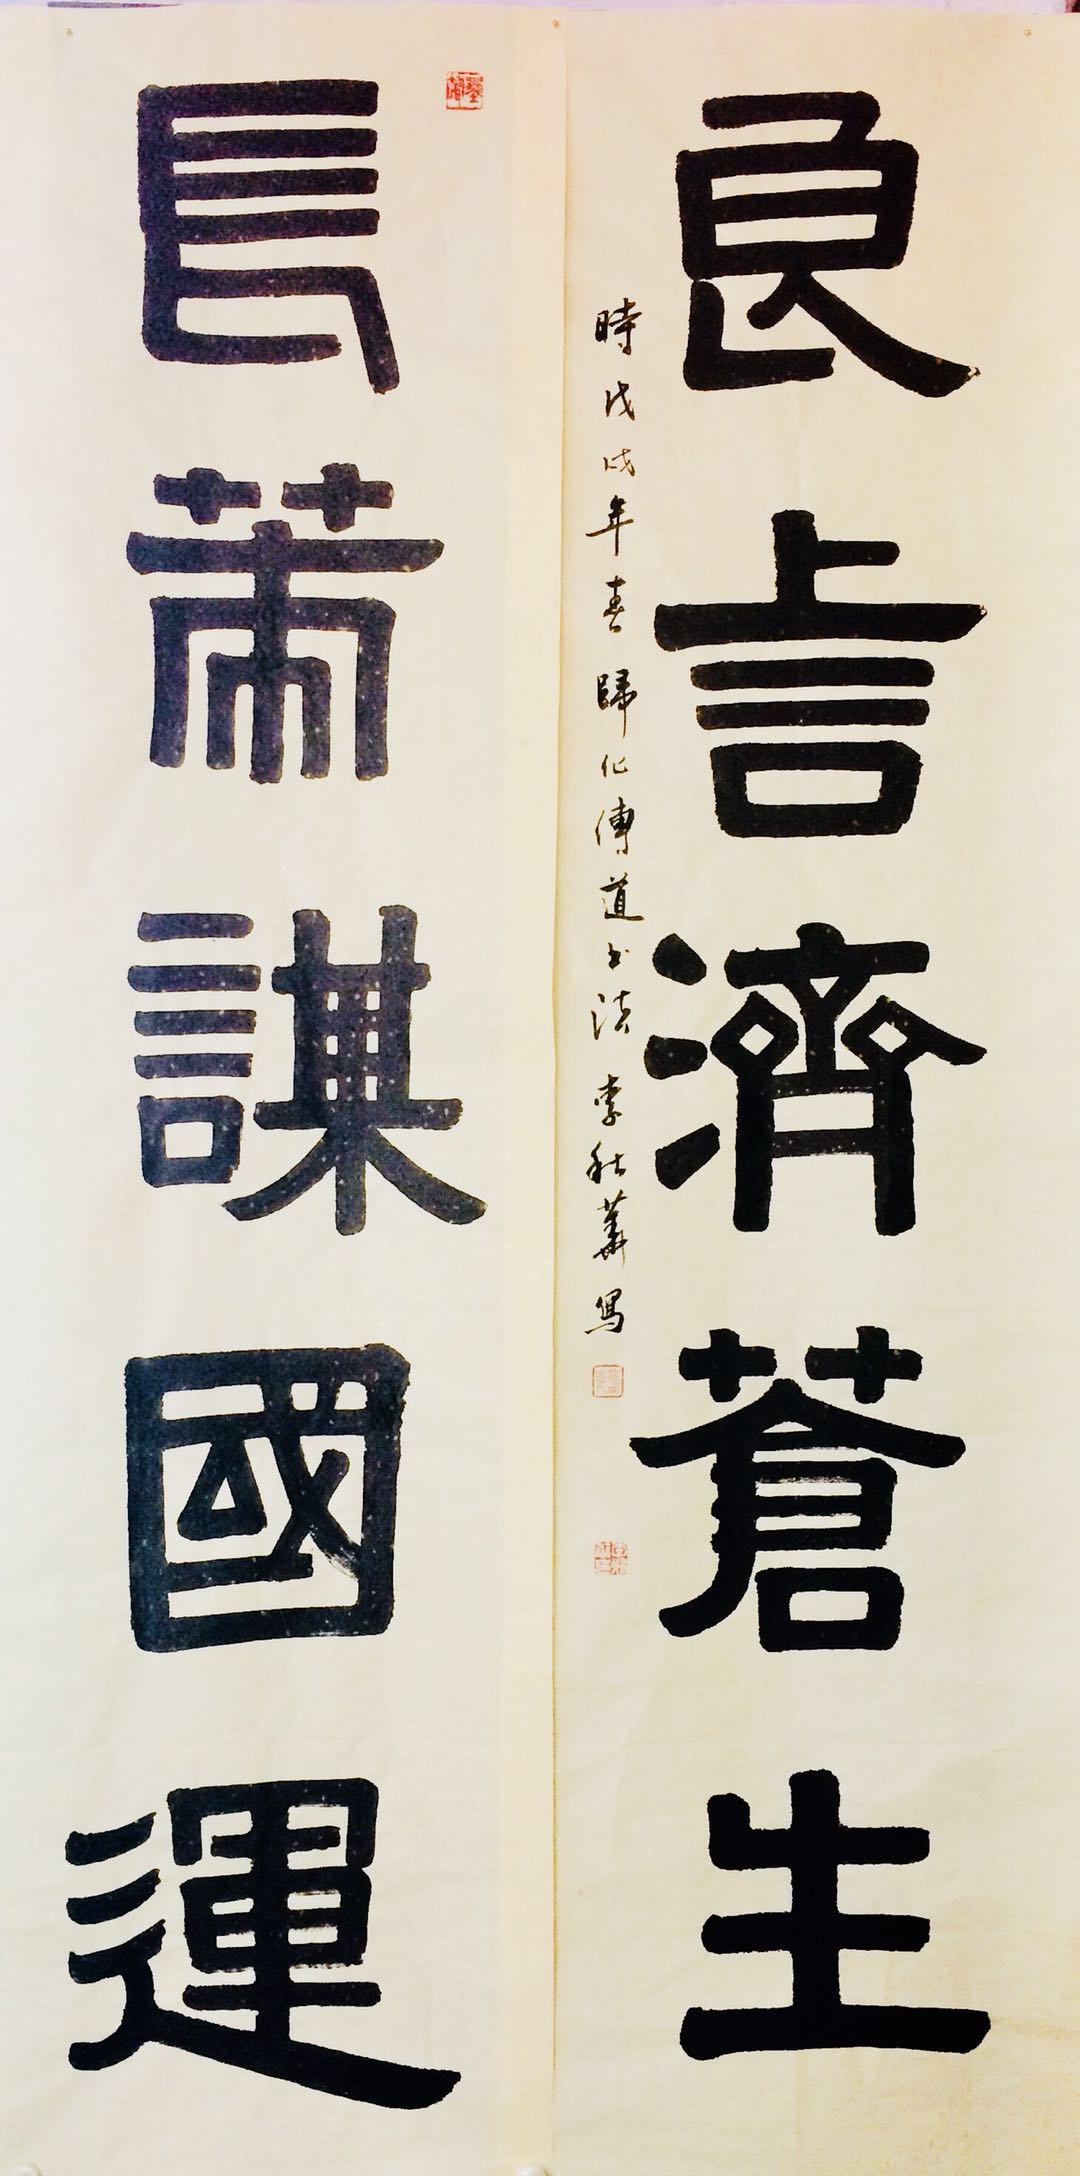 良言濟蒼生
時戊戌年春歸化傳道书法李秋蕭寫
長策謀國運